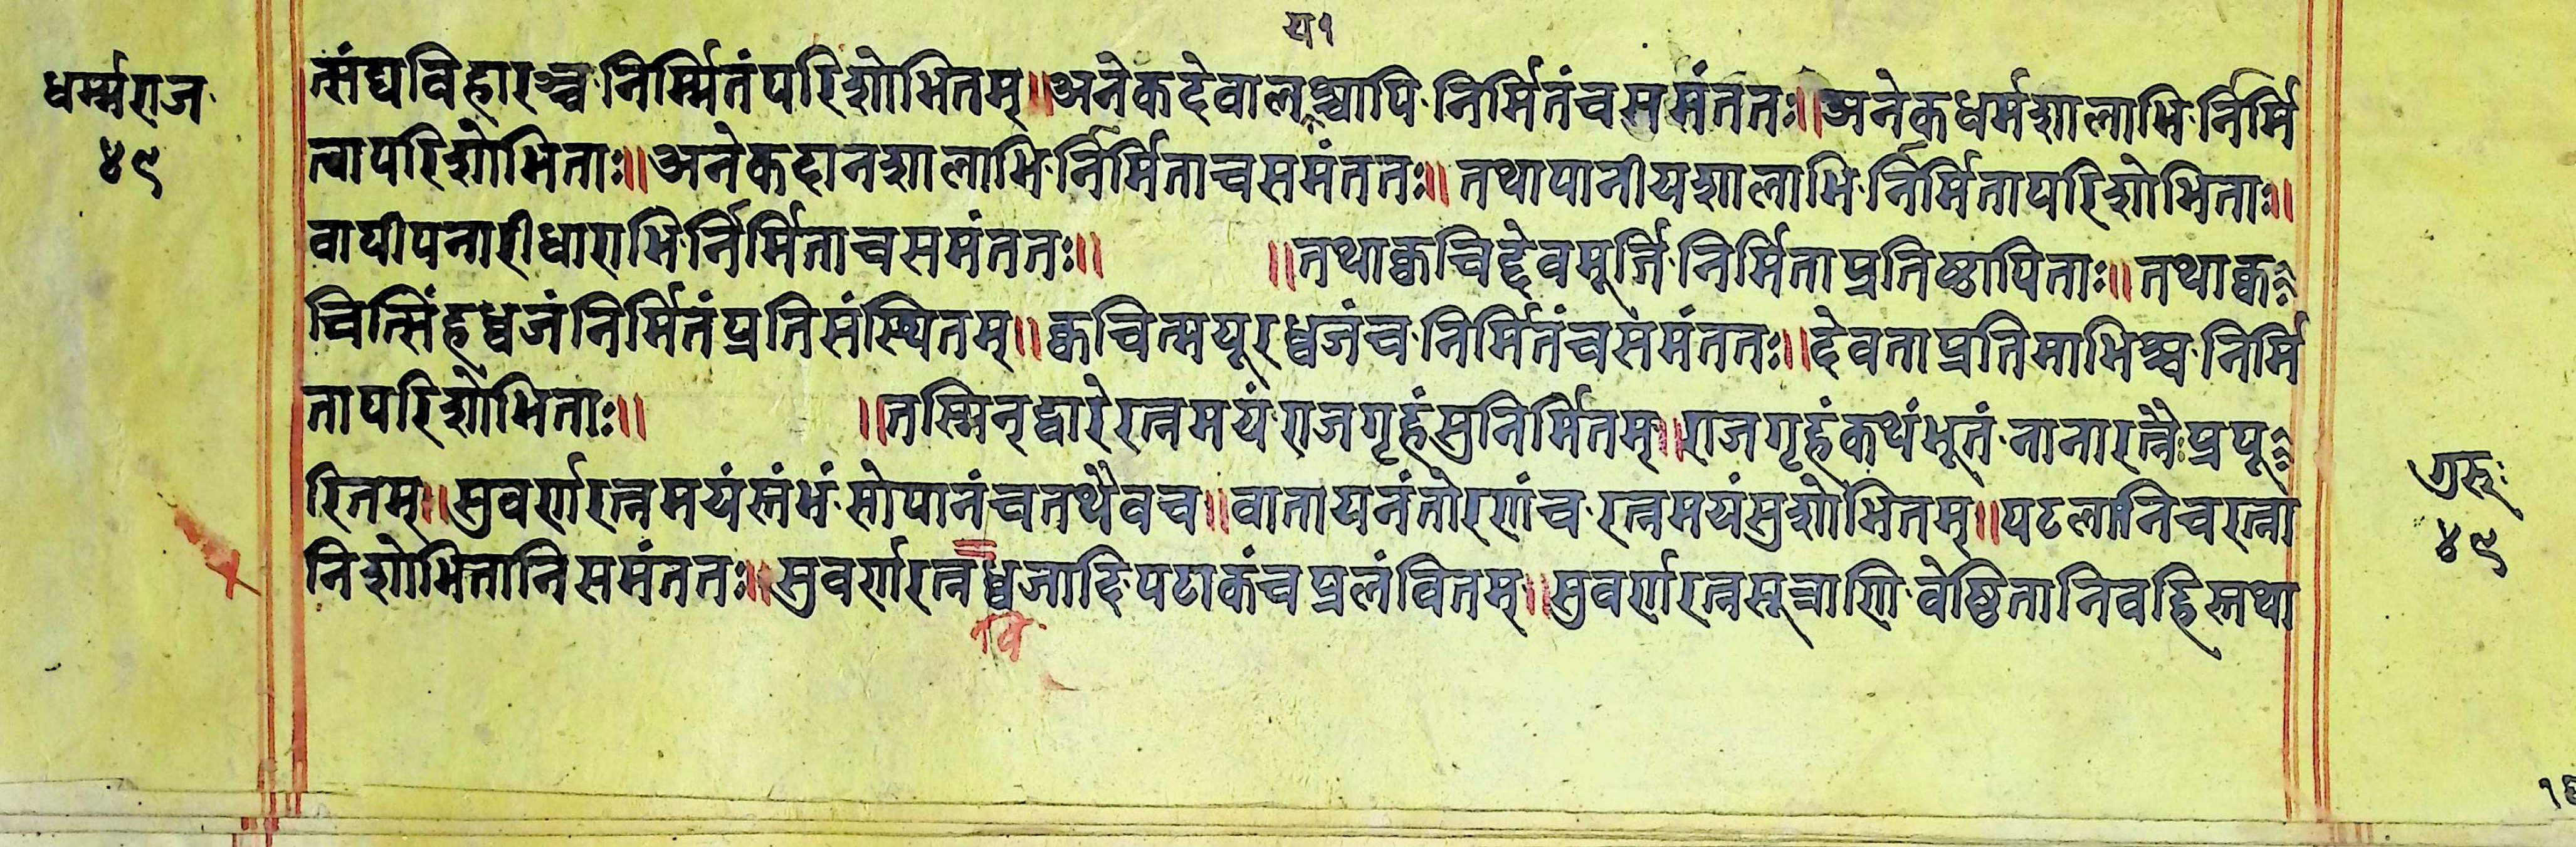 य१
धर्म्मराज
४९
त्संघविहारञ्च निर्म्मितं परिशोभितम्॥अनेकदेवालश्चापि निर्मितं च समंततः॥अनेकधर्मशालाभि र्निर्मि
त्वा परिशोभिताः॥अनेकदानशालाभि र्निर्मिता च समंततः॥ तथा पानीयशालाभि र्निर्मिता परिशोभिताः॥
वापीपनारीधाराभि र्निर्मिता च समंततः॥ ॥तथा क्वचिद्देवमूर्त्ति निर्मिता प्रतिष्ठापिताः॥तथा क्व
चित्सिंहध्वजं निर्मितं प्रतिसंस्थितम्॥क्वचित्मयूरध्वजं च निर्मितं च समंततः॥देवताप्रतिमाभिश्च निर्मि
ता परिशोभिताः॥ ॥तस्मिन् द्वारे रत्नमयं राजगृहं सुनिर्मितम्॥राजगृहं कथं भूतं नानारत्नैः प्रपू
रितम्॥सुवर्णरत्नमयं स्तंभं सोपानं च तथैव च॥वातायनं तोरणं च रत्नमयं सुशोभितम्॥पटलानि च रत्ना
नि शोभितानि समंततः॥सुवर्णरत्नध्वजादि पटाकं च प्रलंवितम्॥सुवर्णरत्नसूत्राणि वेष्ठितानि वहिस्तथा
वि
गुरुः
४९